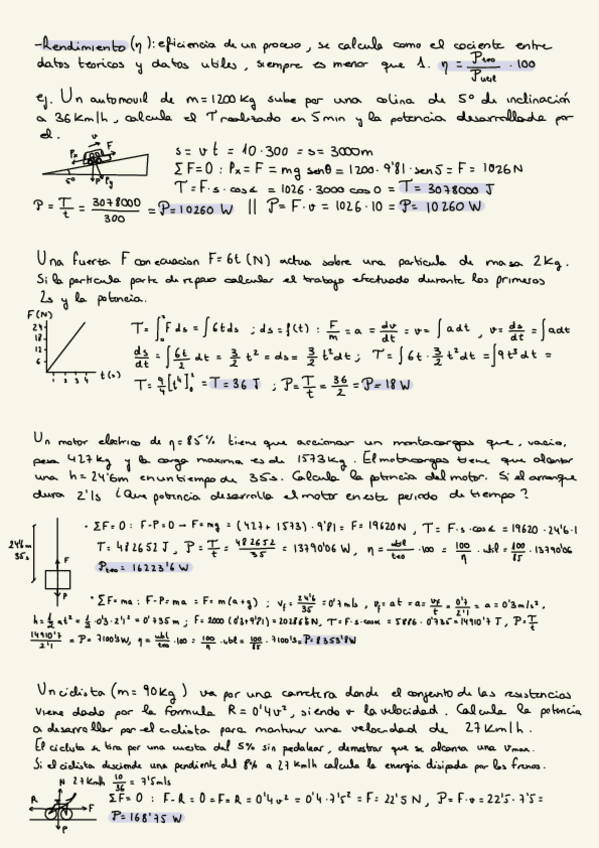 -Rendimiento (η): eficiencia de un proceso, se calcula como el cociente entre
datos teoricos y datos utiles, siempre es menor que 1. η = Pteo/Putil · 100
ej. Un automovil de m=1200kg sube por una colina de 5º de inclinación
a 36Km/h, calcula el T realizado en 5min y la potencia desarrollada por
el.
s = v t = 10·300 = s = 3000m
ΣF=0 : Px = F = mg senθ = 1200·9'81·sen5 = F = 1026N
T = F·s·cosα = 1026·3000 cos0 = T = 3078000 J
P = T/t = 3078000/300 = P=10260 W || P = F·v = 1026·10 = P= 10260 W
v
F
Px
5º
P
Py
Una fuerza F con ecuacion F=6t (N) actua sobre una particula de masa 2Kg.
Si la particula parte de reposo calcular el trabajo efectuado durante los primeros
2s y la potencia.
F(N)
24
18
12
6
1 2 3 4 t(s)
T = ∫₀² F ds = ∫6t ds ; ds = f(t) : F/m = a = dv/dt = v = ∫adt, v = ds/dt = ∫adt
ds/dt = ∫6t/2 dt = 3/2 t² = ds = 3/2 t² dt ; T = ∫6t · 3/2 t² dt = ∫9t³ dt =
T = 9/4 [t⁴]₀² = T = 36 J ; P = T/t = 36/2 = P = 18 W
Un motor electrico de η=85% tiene que accionar un montacargas que, vacio,
pesa 427kg y la carga maxima es de 1573Kg. El motacargas tiene que alcanzar
una h=24'6m en un tiempo de 35s. Calcula la potencia del motor. Si el arranque
dura 2'1s ¿Que potencia desarrolla el motor en este periodo de tiempo?
24'6m
35s
F
P
· ΣF=0 : F-P=0 → F=mg = (427+1573)·9'81 = F= 19620N, T = F·s·cosα = 19620·24'6·1
T = 482652J, P = T/t = 482652/35 = 13790'06 W, η = util/teo · 100 = 100/η · util = 100/85 · 13790'06
Pteo = 16223'6 W
· ΣF=ma : F-P=ma = F=m(a+g) ; vf = 24'6/35 = 0'7m/s, vf = at = a = vf/t = 0'7/2'1 = a = 0'3m/s²,
h = 1/2 at² = 1/2 · 0'3 · 2'1² = 0'735m ; F = 2000 (0'3+9'81) = 20286N, T = F·s·cosα = 5886·0'735 = 14910'7 J, P = T/t
14910'7/2'1 = P = 7100'3W, η = util/teo · 100 = 100/η · util = 100/85 · 7100'3 = P = 8353'8W
Un ciclista (m=90Kg) va por una carretera donde el conjunto de las resistencias
viene dado por la formula R = 0'4v², siendo v la velocidad. Calcula la potencia
a desarrollar por el ciclista para mantener una velocidad de 27Km/h.
El ciclista se tira por una cuesta del 5% sin pedalear, demostrar que se alcanza una vmax.
Si el ciclista desciende una pendiente del 8% a 27 Km/h calcula la energia disipada por los frenos.
N 27 Km/h 10/36 = 7'5m/s
R
F
P
ΣF=0 : F-R=0 = F=R = 0'4v² = 0'4·7'5² = F= 22'5N, P = F·v = 22'5·7'5 =
P = 168'75 W